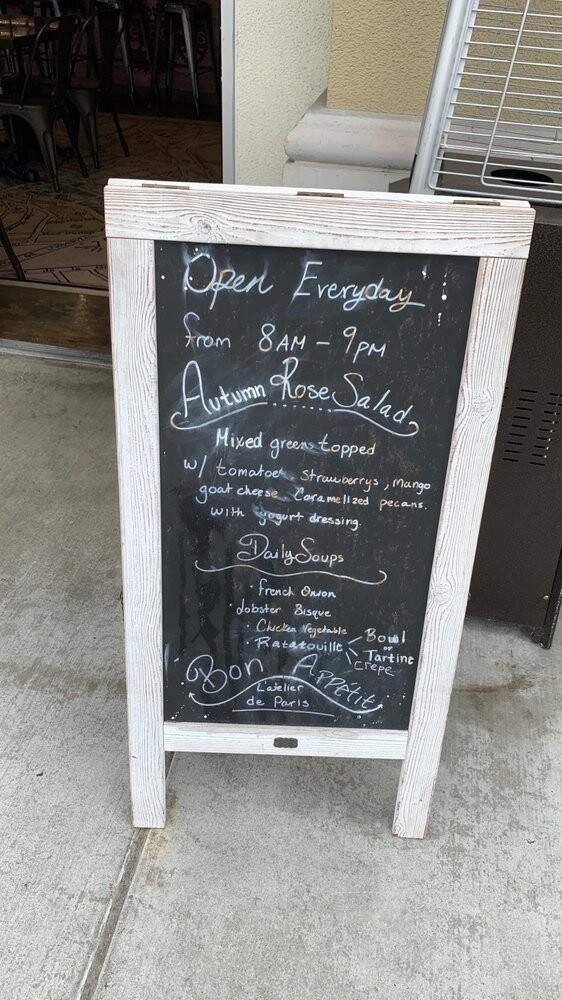 Open Everyday
from 8AM - 9PM
Autumn Rose Salad
Mixed greens topped
w/ tomatoe Strawberrys, mango
goat cheese Caramelized pecans.
with yogurt dressing.
Daily Soups
• French Onion
• Lobster Bisque
• Chicken Vegetable
• Ratatouille < Bowl or Tartine Crepe
Bon Appétit
L'atelier
de Paris